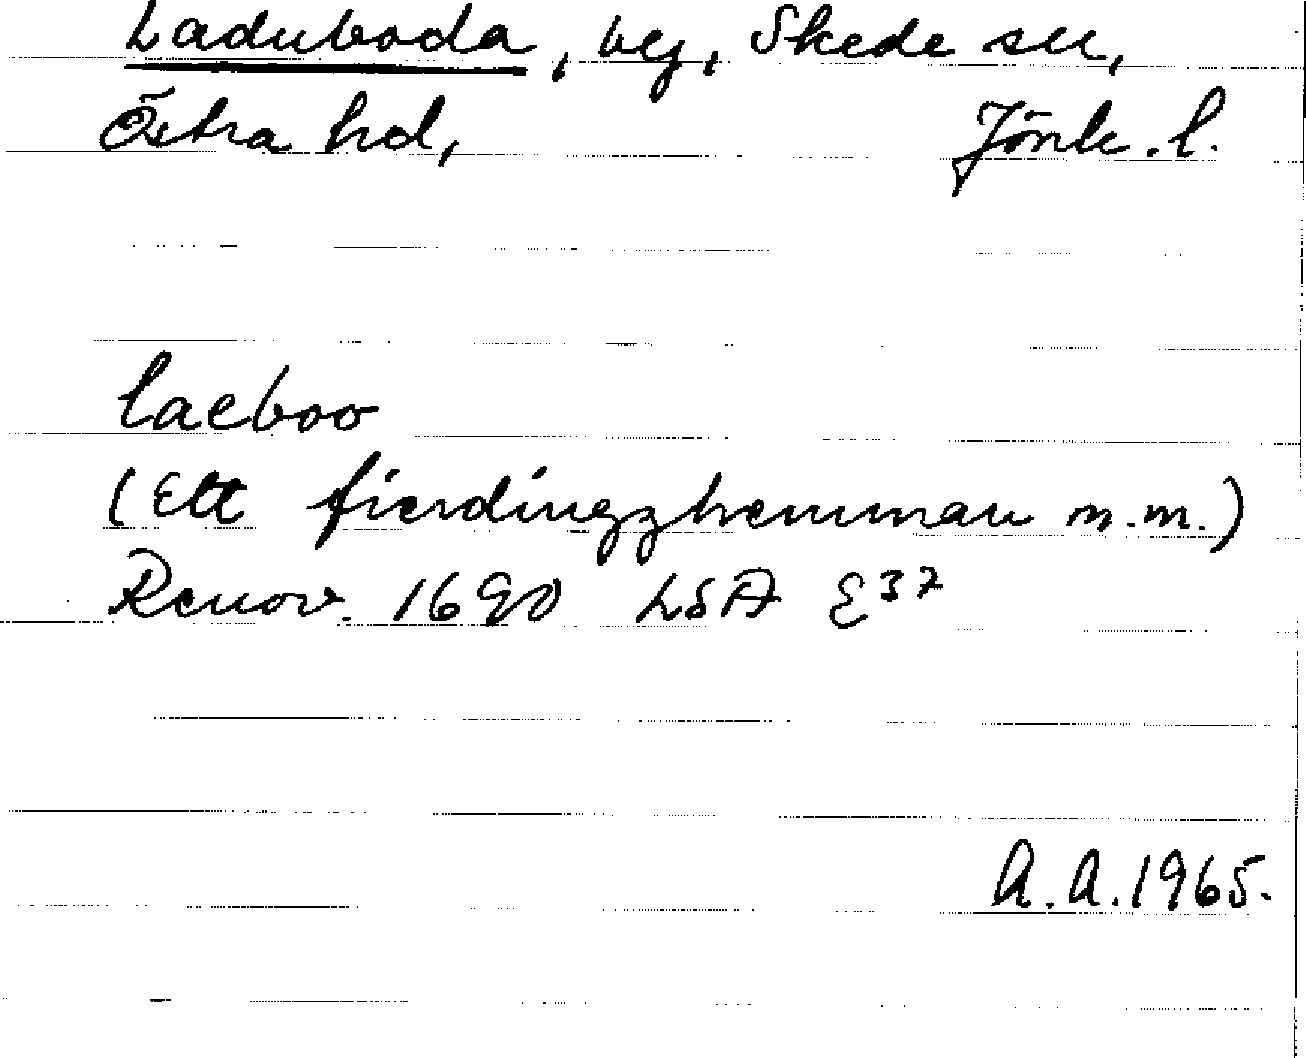 Laduboda, by, Skede sn,
Östra hd, Jönk. l.
laeboo
(Ett fierdingzhemman m.m.)
Renov. 1690 LSA E37
A.A. 1965.